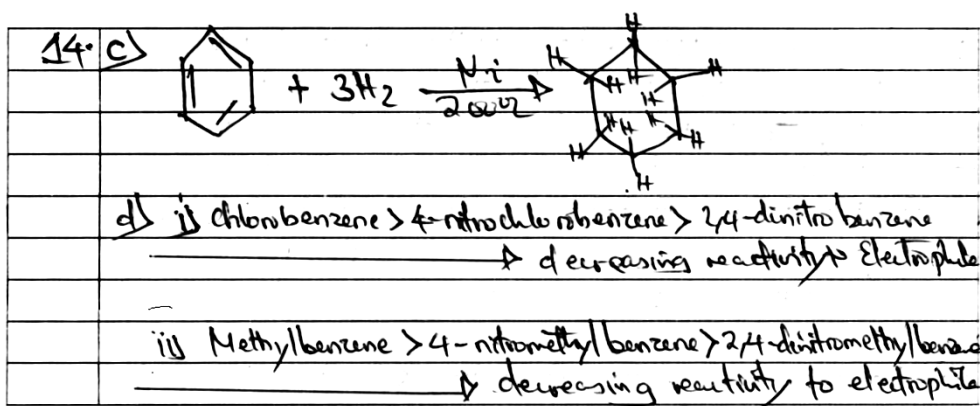 14. c) + 3H2 Ni 200°C H H H H H H H H H H H H
d) i) Chlorobenzene > 4-nitrochlorobenzene > 2,4-dinitrobenzene
decreasing reactivity to Electrophile
ii) Methylbenzene > 4-nitromethylbenzene > 2,4-dinitromethylbenzene
decreasing reactivity to electrophile